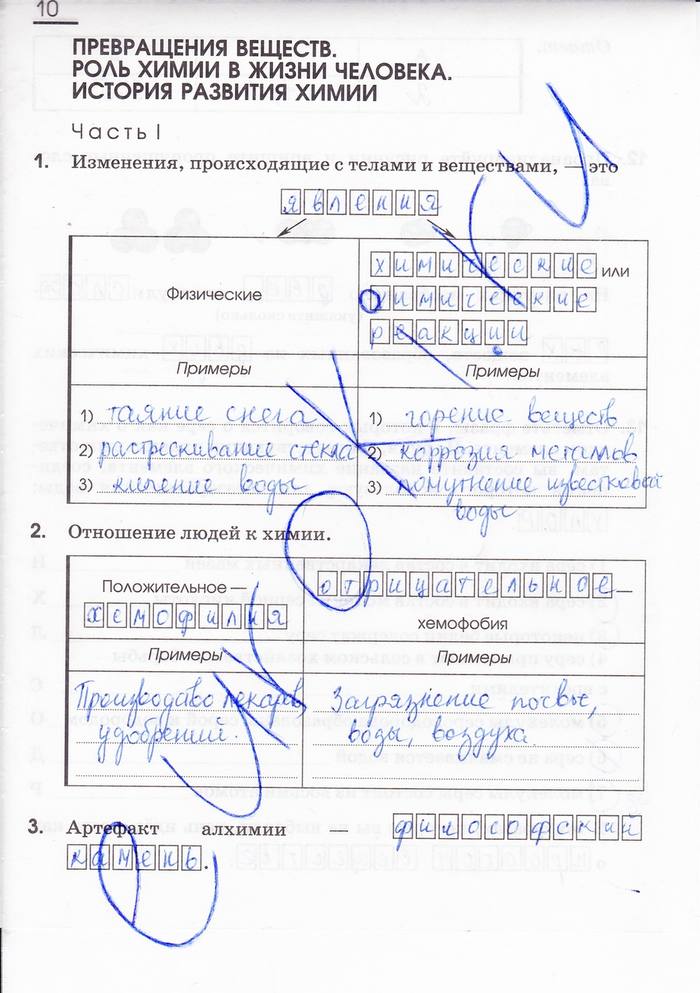 10
ПРЕВРАЩЕНИЯ ВЕЩЕСТВ.
РОЛЬ ХИМИИ В ЖИЗНИ ЧЕЛОВЕКА.
ИСТОРИЯ РАЗВИТИЯ ХИМИИ
Часть I
1. Изменения, происходящие с телами и веществами, — это
явления
Физические
химические или
химические
реакции
Примеры
Примеры
1) таяние снега
2) растрескивание стекла
3) кипение воды
1) горение веществ
2) коррозия металлов
3) помутнение известковой
воды
2. Отношение людей к химии.
Положительное —
хемофилия
отрицательное —
хемофобия
Примеры
Примеры
Производство лекарив,
удобрений.
Загрязнение почвы,
воды, воздуха.
3. Артефакт алхимии — философский
камень.